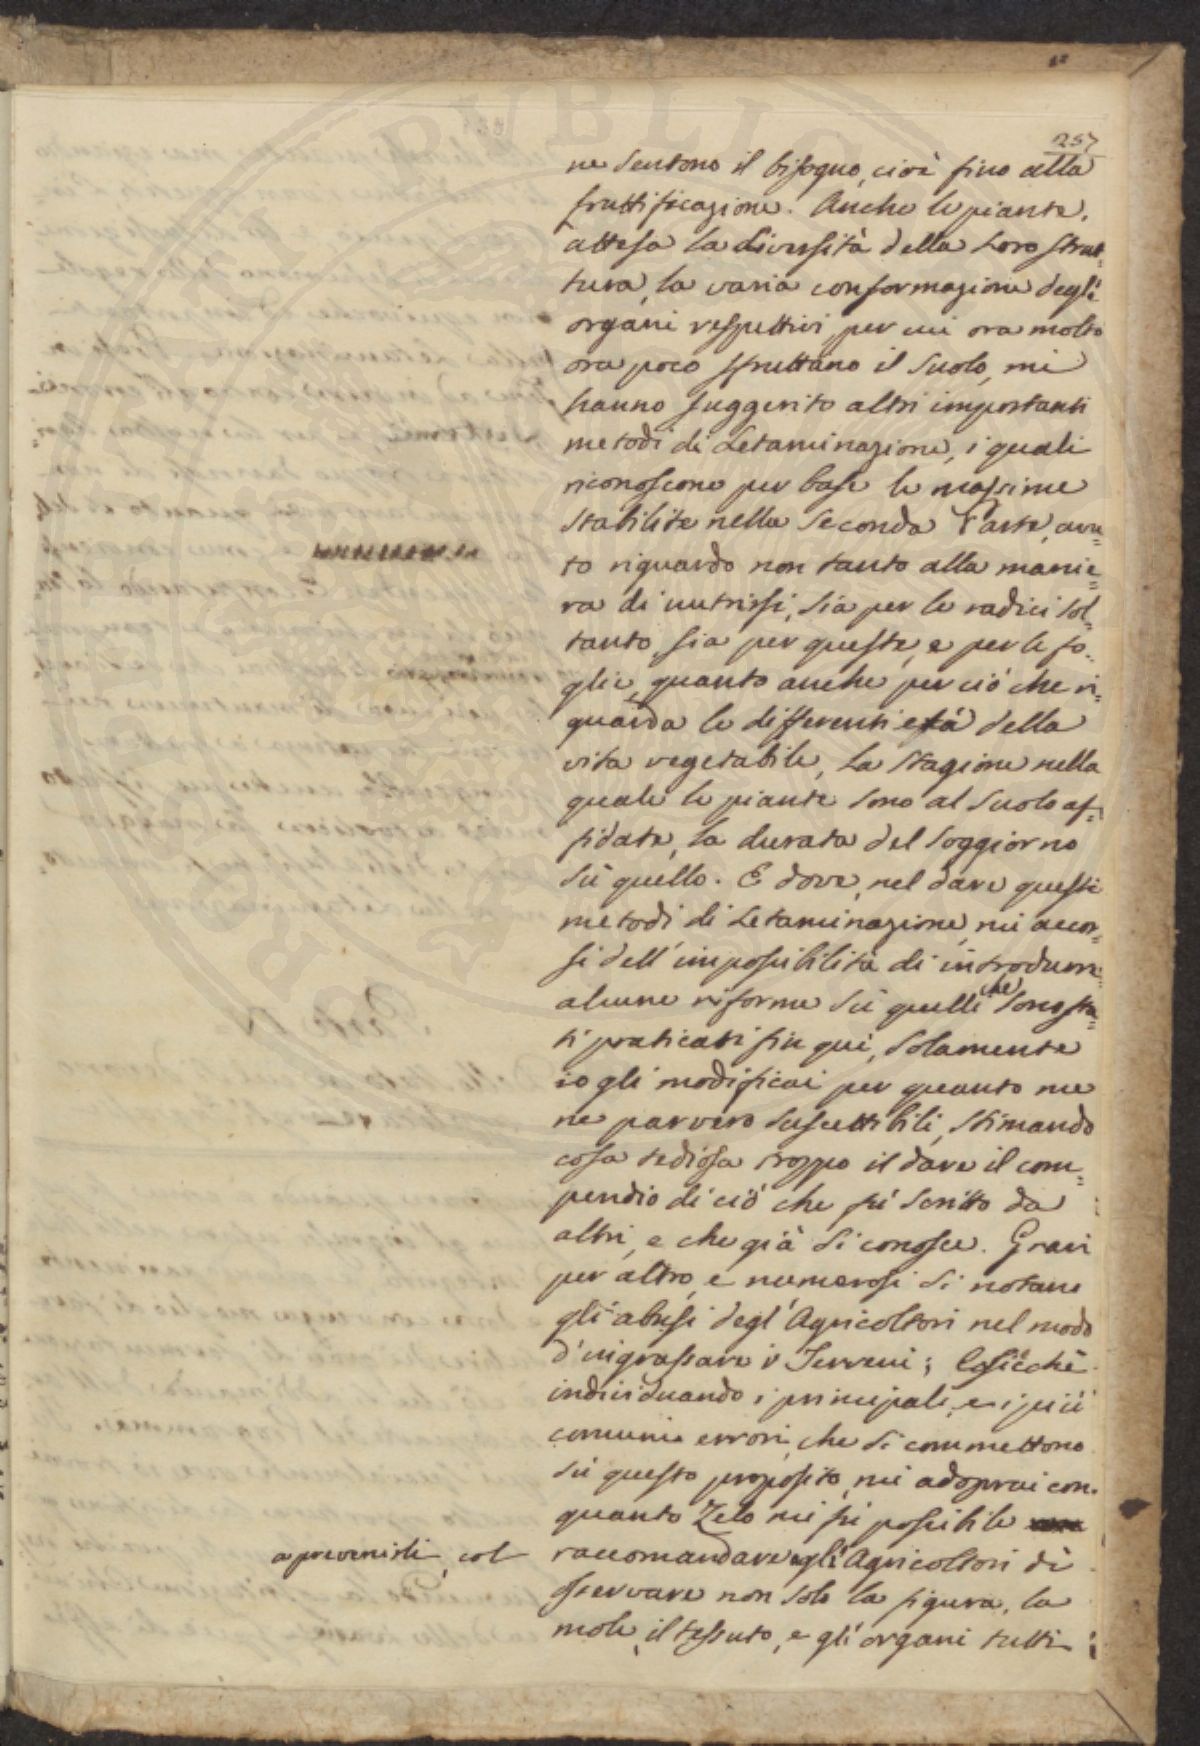 257
ne sentono il bisogno, cioè fino alla
fruttificazione. Anche le piante,
attesa la diversità della loro strut=
tura, la varia conformazione degli
organi respettivi, per cui ora molto
ora poco sfruttano il suolo, mi
hanno suggerito altri importanti
metodi di Letaminazione, i quali
riconoscono per base le massime
stabilite nella Seconda Parte, avu=
to riguardo non tanto alla manie=
ra di nutrirsi, sia per le radici sol=
tanto, sia per queste, e per le fo=
glie, quanto anche per ciò che ri=
guarda le differenti età della
vita vegetabile, la stagione nella
quale le piante sono al suolo af=
fidate, la durata del soggiorno
sù quello. E dove, nel dare questi
metodi di Letaminazione, mi accor=
si dell'impossibilità di introdurre
alcune riforme sù quelli che sono sta=
ti praticati fin quì, solamente
io gli modificai per quanto me
ne parvero suscettibili, stimando
cosa tediosa troppo il dare il com=
pendio di ciò che fù scritto da
altri, e che già si conosce. Gravi
per altro, e numerosi si notano
gli abusi degl'Agricoltori nel modo
d'ingrassare i Terreni; Cosicchè
individuando i principali, e i più
comuni errori, che si commettono
sù questo proposito, mi adoprai con
quanto Zelo mi fù possibile
a prevenirli, col
raccomandare agli Agricoltori di
osservare non solo la figura, la
mole, il tessuto, e gli organi tutti